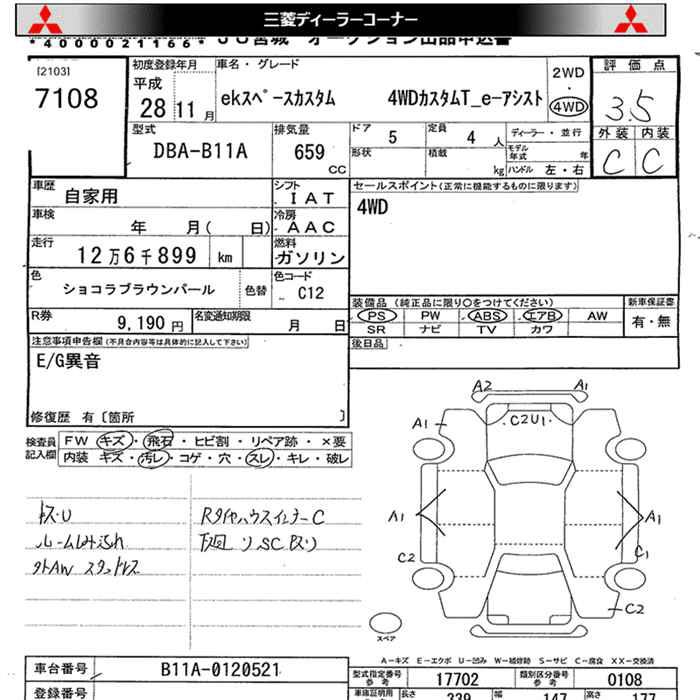 三菱ディーラーコーナー
*4000021166* JU宮城 オークション出品申込書
[2103]
7108
初度登録年月
平成
28 11 月
車名・グレード
ekスペースカスタム 4WDカスタムT_e-アシスト
2WD
・
4WD
評価点
3.5
外装 内装
C C
型式
DBA-B11A
排気量
659
CC
ドア
5
定員
4 人
形状
積載
kg
ディーラー・並行
モデル年式 年
ハンドル 左・右
車歴
自家用
シフト
IAT
車検
年 月( 日)
冷房
AAC
走行
12万6千899 km
燃料
ガソリン
色
ショコラブラウンパール
色替
色コード
C12
R券
9,190 円
名変通知期限
月 日
セールスポイント(正常に機能するものに限ります)
4WD
装備品(純正品に限り○をつけてください)
PS PW ABS エアB AW
SR ナビ TV カワ
新車保証書
有・無
後日品
注意事項申告欄(不具合内容等は具体的に記入して下さい)
E/G異音
修復歴 有〔箇所 〕
検査員記入欄
FW キズ・飛石・ヒビ割・リペア跡・×要
内装 キズ・汚レ・コゲ・穴・スレ・キレ・破レ
キズ・U
ルームしみ汚れ
外AW スタッドレス
RタイヤハウスインナーC
下廻り、SC、ぬり
A2 A1
A1
C2U1
A1
A1
C2
C1
C2
スペア
A-キズ E-エクボ U-凹み W-補修跡 S-サビ C-腐食 XX-交換済
車台番号
B11A-0120521
登録番号
型式指定番号
参考
17702
類別区分番号
参考
0108
車庫証明用
参考
長さ
339
幅
147
高さ
177